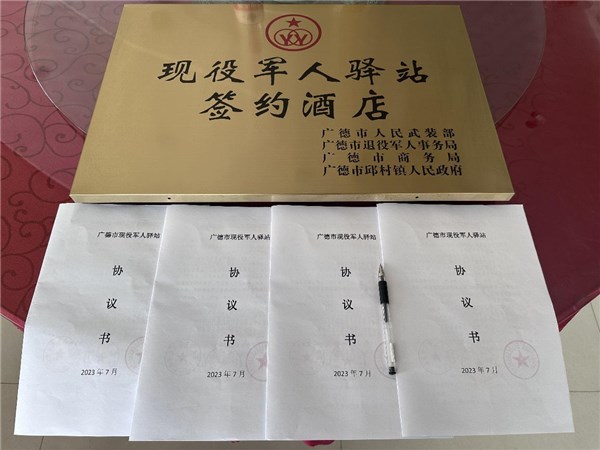 现役军人驿站
签约酒店
广德市人民武装部
广德市退役军人事务局
广德市商务局
广德市邱村镇人民政府
广德市现役军人驿站
协
议
书
2023年7月
广德市现役军人驿站
协
议
书
2023年7月
广德市现役军人驿站
协
议
书
2023年7月
广德市现役军人驿站
协
议
书
2023年7月